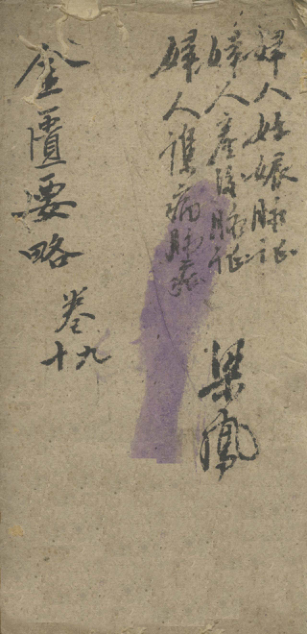 婦人妊娠脉証
婦人產後脉証
婦人襍病脉症
梁鳳
金匱要略 卷十九